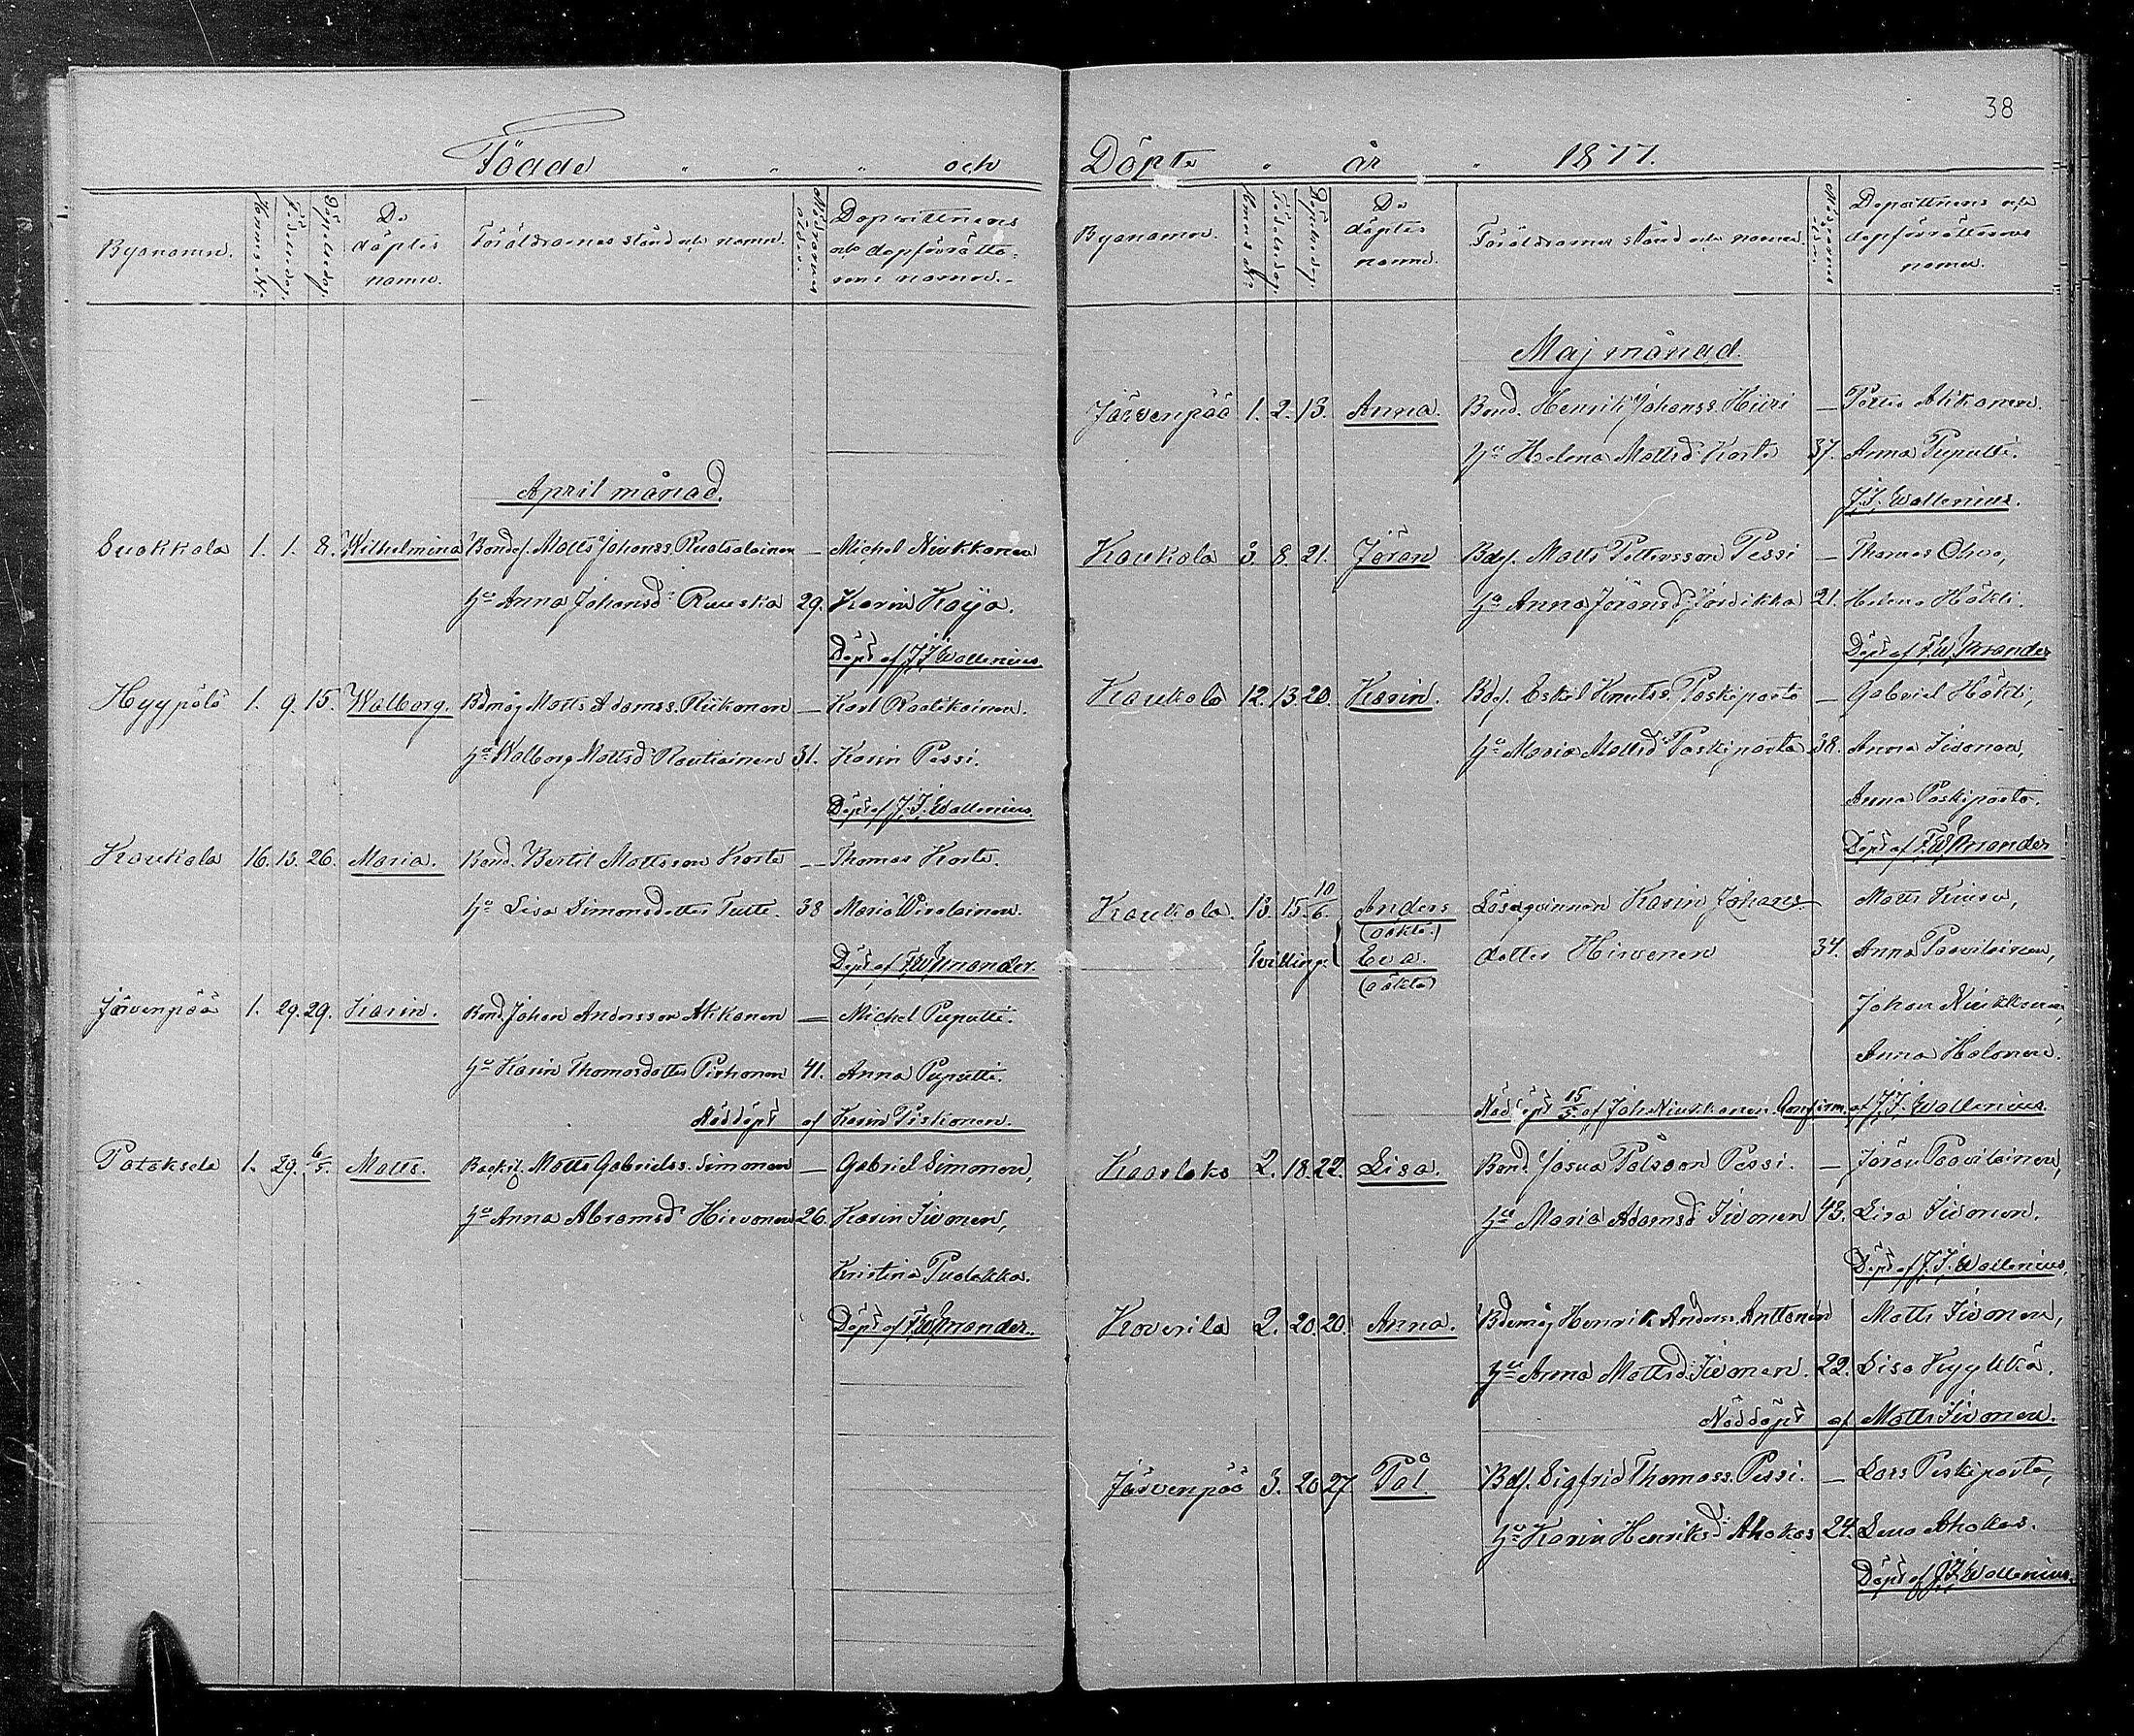 38
Födde och
Döpte år 1877.
Byanamn. Hemms. No: Födelsedag. Döpelsedag. De döptes namn. Föräldrarnes stånd och namn. Mödrarnes ålder. Dopvittnens och dopförrätta- rens namn.
April månad.
Suokkala 1. 1. 8. Wilhelmina Bondes. Matts Johanss. Ruotsalainen — Michel Niukkanen
hu Anna Johansdr Ruuska 29. Karin Kaija.
Döpt af J.J. Wallenius
Hyypölä 1. 9. 15. Walborg. Bdmåg Matts Adamss. Riikonen — Karl Raatikainen.
hu Walborg Mattsdr Rautiainen 31. Karin Pessi.
Döpt af J.J. Wallenius.
Koukola 16. 13. 26. Maria. Bond. Bertil Mattsson Korte — Thomas Korte.
hu Lisa Simonsdotter Tutte. 38 Maria Wirolainen.
Döpt af F.W. Smander.
Järvenpää 1. 29. 29. Karin. Bond. Johan Andersson Akkanen — Michel Puputti.
hu Karin Thomasdotter Pirhonen 41. Anna Puputti.
Nöddöpt af Karin Pirhonen.
Pataksela 1. 29. 6/5. Matts. Matts Gabrielss. Simonen — Gabriel Simonen,
hu Anna Abramsdr Hirvonen 26. Karin Iivonen,
Kristina Pudakka.
Döpt af F.W. Smander.
Byanamn. Hemms. No: Födelsedag. Döpelsedag. De döptes namn. Föräldrarnes stånd och namn. Mödrarnes ålder. Dopvittnens och dopförrättarens namn.
Maj månad.
Järvenpää 1. 2. 13. Anna. Bond. Henrik Johanss. Hiiri — Petter Akkanen.
hu Helena Mattsdr Korte 37. Anna Puputti.
J.J. Wallenius.
Koukola 3. 8. 21. Jöran Bdes. Matts Pettersson Pessi — Thomas Ohvo,
hu Anna Jöransdr 21. Helena Hökli.
Döpt af F.W. Smander
Koukola 12. 13. 20. Karin. Bdes. Eskel Knutss. Paskiparta — Gabriel Hökli,
hu Maria Mattsdr Paskiparta 38. Anna Iivonen,
Anna Paskiparta.
Döpt af F.W. Smander
Koukola. 13. 15. 10/6. Anders Lösqvinnan Karin Johans- Matts Kiuru,
(oäkta.)
Tvilling. Eva. dotter Hirvonen 34. Anna Paavilainen,
(oäkta)
Johan Niukkanen,
Anna Halonen.
Nöddöpt 15/5 af Joh. Niukkanen. Confirm. af J.J. Wallenius.
Kaarlaks 2. 18. 22. Lisa. Bond. Josua Pålsson Pessi. — Jöran Paavilainen,
hu Maria Adamsd Iivonen 43. Lisa Iivonen.
Döpt af J.J. Wallenius,
Koverila 2. 20. 20. Anna. Bdemåg Henrik Anderss. Anttonen Matts Iivonen,
hu Anna Mattsd. Iivonen. 22. Lisa Kyykkä.
Nöddöpt af Matts Iivonen.
Järvenpää 3. 20 27 Pål. Bdes. Sigfrid Thomass. Pessi. — Lars Paskiparta,
hu Karin Henriksdr Ahokas 24. Lena Ahokas.
Döpt af J.J. Wallenius.